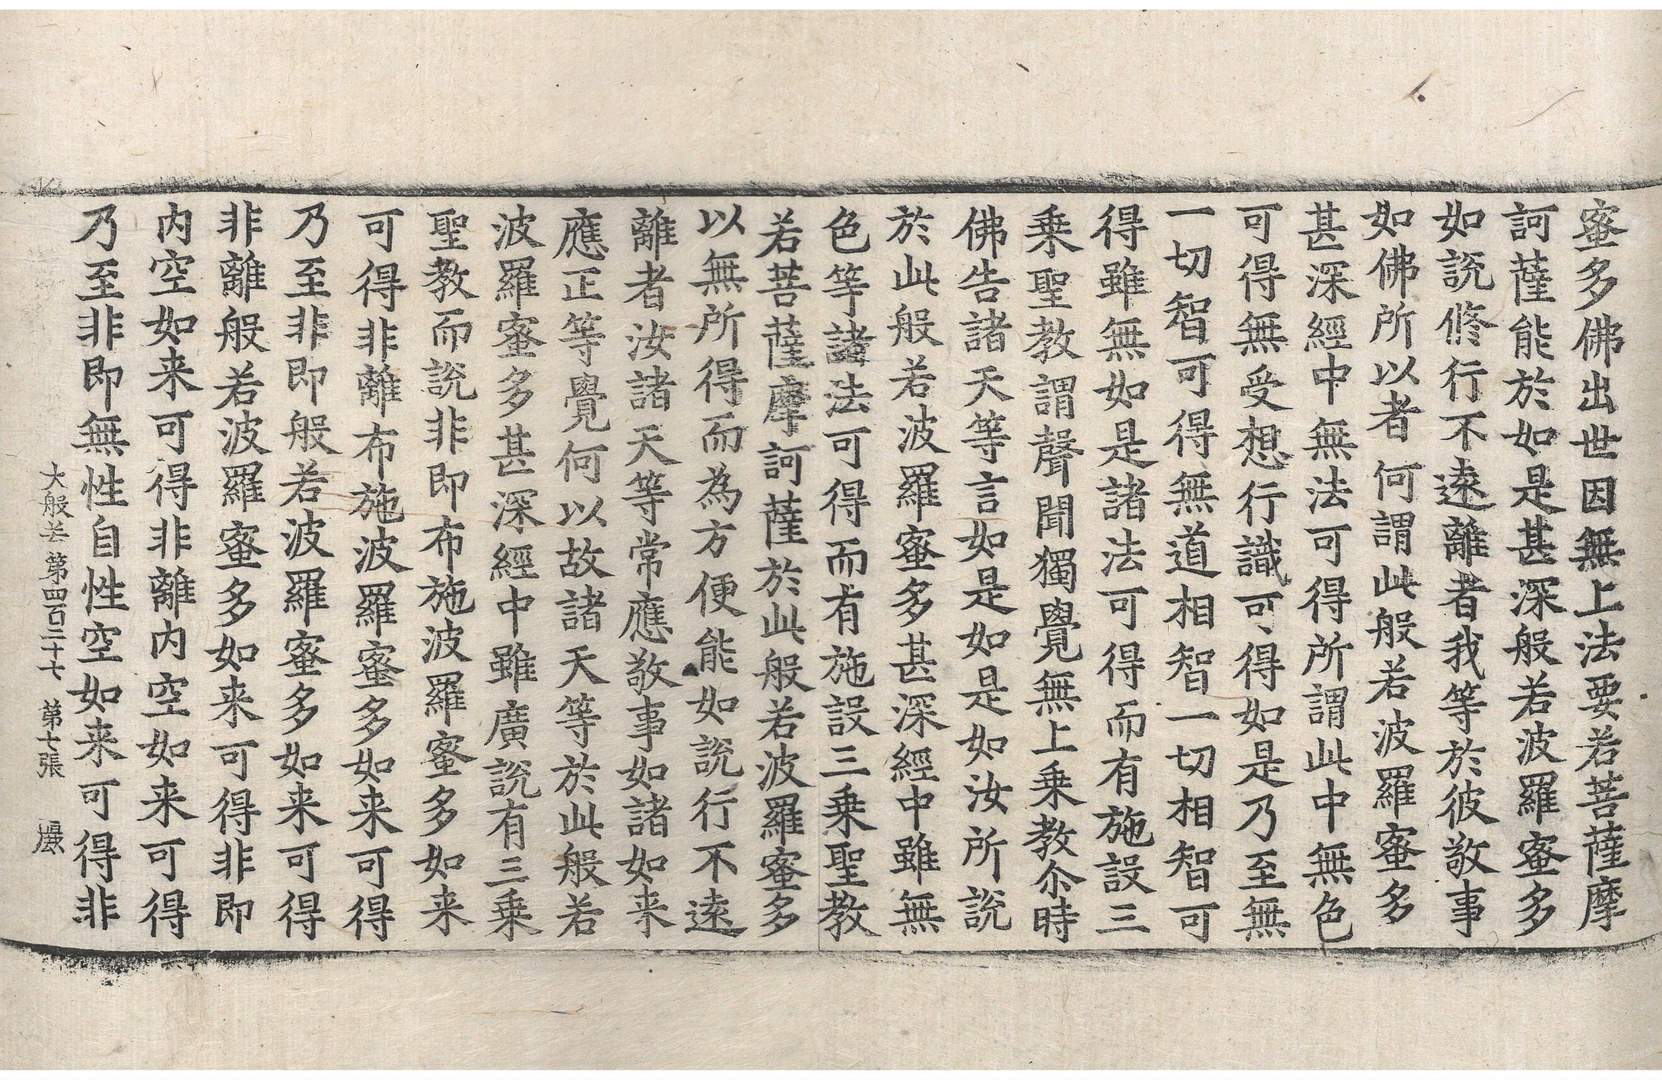 蜜多佛出世因無上法要若菩薩摩
訶薩能於如是甚深般若波羅蜜多
如説修行不遠離者我等於彼敬事
如佛所以者何謂此般若波羅蜜多
甚深經中無法可得所謂此中無色
可得無受想行識可得如是乃至無
一切智可得無道相智一切相智可
得雖無如是諸法可得而有施設三
乗聖教謂聲聞獨覺無上乗教尒時
佛告諸天等言如是如是如汝所説
於此般若波羅蜜多甚深經中雖無
色等諸法可得而有施設三乗聖教
若菩薩摩訶薩於此般若波羅蜜多
以無所得而為方便能如説行不遠
離者汝諸天等常應敬事如諸如来
應正等覺何以故諸天等於此般若
波羅蜜多甚深經中雖廣説有三乗
聖教而説非即布施波羅蜜多如来
可得非離布施波羅蜜多如来可得
乃至非即般若波羅蜜多如来可得
非離般若波羅蜜多如来可得非即
内空如来可得非離内空如来可得
乃至非即無性自性空如来可得非
大般若第四百二十七 第七張